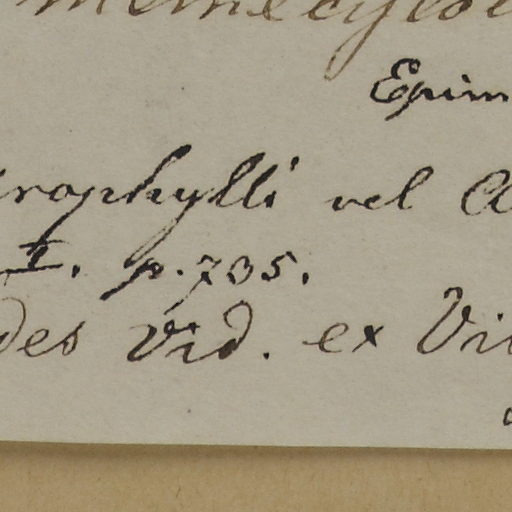 Epim
rophylli vel A
I. p. 735.
des Vid. ex Vi